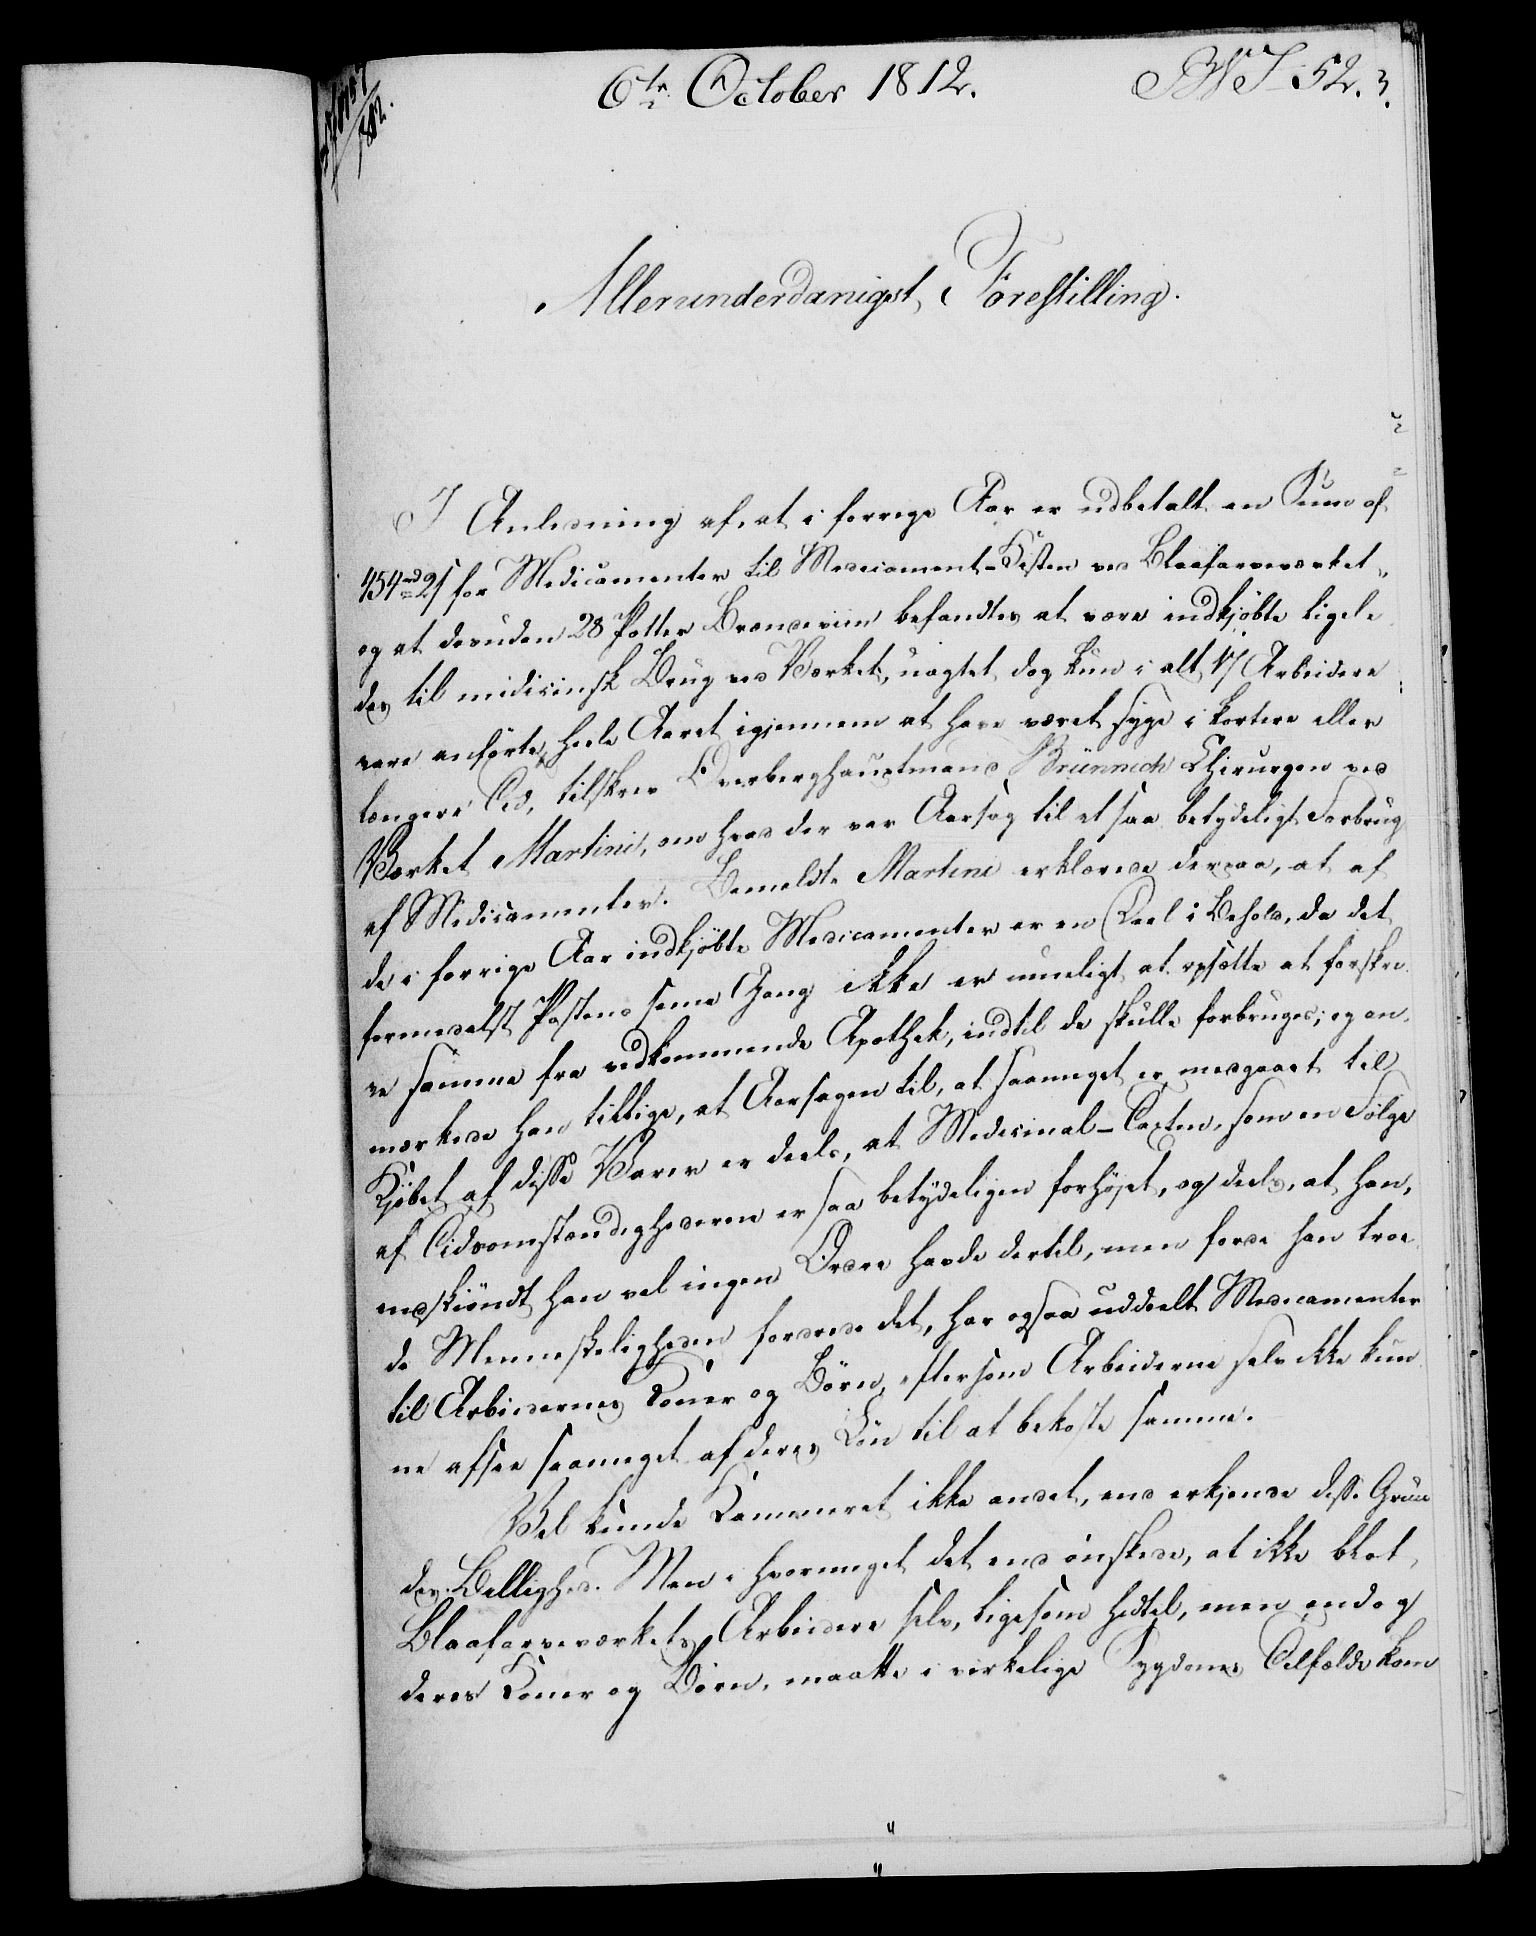 6te October 1812.
52.
Allerunderdanigst Forestilling.
I Anledning af, at i forrige Aar er udbetalt en Sum af
454 rd 2 s for Medicamenter til Medicament-Kisten ved Blaafarveværket,
og at desuden 28 Potter Brændeviin befandtes at være indkjøbte ligele
des til medicinsk Brug ved Værket, uagtet dog kun i alt 17 Arbeidere
vare anførte, heele Aaret igjennem at have været syge i kortere eller
længere Tid, tilskrev Overberghauptmand Brünnich Chirurgen ved
Værket Martini, om hvad der var Aarsag til et saa betydeligt Forbrug
af Medicamenter. Bemeldte Martini erklærede derpaa, at af
de i forrige Aar indkjøbte Medicamenter er en Deel i Behold, da det
formedelst Postens seene Gang ikke er mueligt at opsætte at forskri
ve samme fra vedkommende Apothek, indtil de skulle forbruges; og an
mærkede han tillige, at Aarsagen til, at saameget er medgaaet til
Kjøbet af disse Varer er deels, at Medicinal-Taxten, som en Følge
af Tidsomstændighederne er saa betydeligen forhøjet, og deels, at han,
endskiøndt han vel ingen Ordre havde dertil, men fordi han troe
de Menneskeligheden fordrede det, har ogsaa uddeelt Medicamenter
til Arbeidernes Koner og Børn, eftersom Arbeiderne selv ikke kun
ne afsee saameget af deres Løn til at bekoste samme.
Vel kunde Kammeret ikke andet, end erkjende disse Grun
des Billighed. Men i hvormeget det end ønskede, at ikke blot
Blaafarveværkets Arbeidere selv, ligesom hidtil, men endog
deres Koner og Børn, maatte i virkelige Sygdoms Tilfælde kom